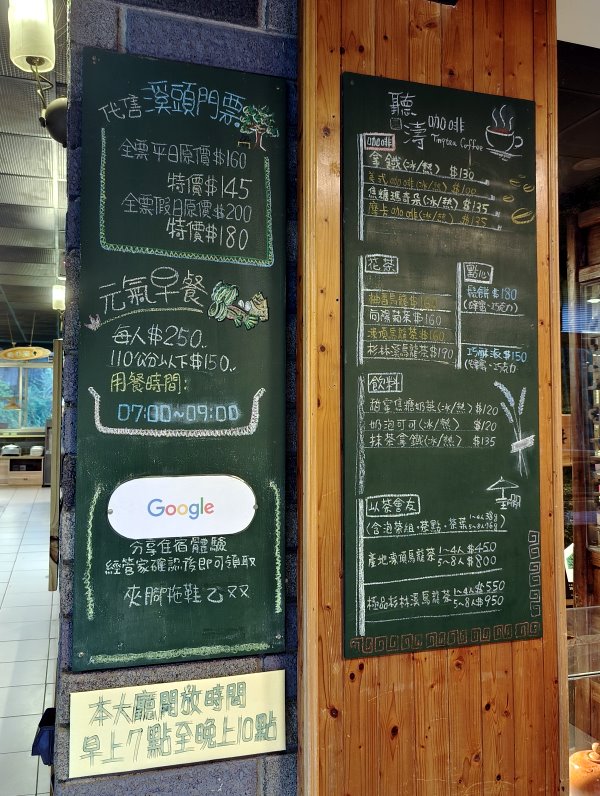 代售溪頭門票
全票平日原價$160
特價$145
全票假日原價$200
特價$180
元氣早餐
每人$250..
110公分以下$150..
用餐時間:
07:00~09:00
Google
分享住宿體驗
經管家確認後即可領取
夾腳拖鞋乙双
本大廳開放時間
早上7點至晚上10點
聽濤咖啡
Tingtao Coffee
咖啡
拿鐵(冰/熱) $130
美式咖啡(冰/熱) $100
焦糖瑪奇朵(冰/熱) $135
摩卡咖啡(冰/熱) $135
花茶
柚香烏龍$160
向陽菊茶$160
凍頂烏龍茶$160
杉林溪烏龍茶$190
點心
鬆餅 $180
(蜂蜜、巧克力)
巧酥派$150
飲料
焦糖奶茶(冰/熱) $120
奶泡可可(冰/熱) $120
抹茶拿鐵(冰/熱) $135
以茶會友
(含泡茶組、茶點、茶葉
產地凍頂烏龍茶 1~4人$450
5~8人$800
極品杉林溪烏龍茶 1~4人$550
5~8人$950